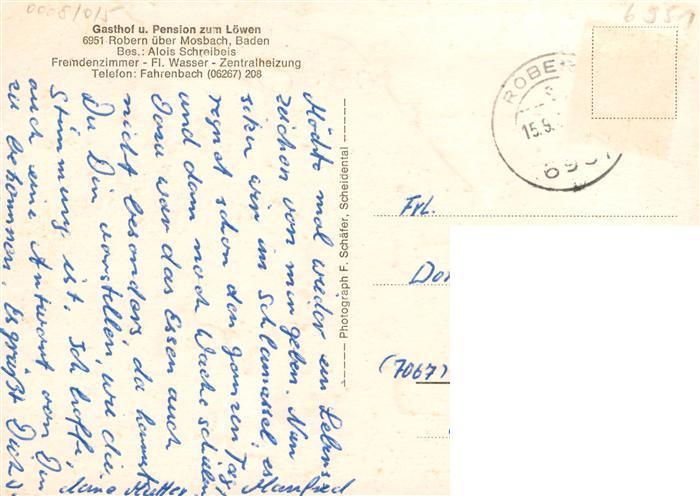 0008/0/5
6951
Gasthof u. Pension zum Löwen
6951 Robern über Mosbach, Baden
Bes.: Alois Schreibeis
Fremdenzimmer - Fl. Wasser - Zentralheizung
Telefon: Fahrenbach (06267) 208
Möchte mal wieder ein Lebens
zeichen von mir geben. Nun
sitzen wir im Schlamassel, es
regnet schon den ganzen Tag,
und dann noch Wache schieben.
Dazu war das Essen auch
nicht besonders, da kannst
Du Dir vorstellen, wie die
Stimmung ist. Ich hoffe,
auch eine Antwort von Dir
zu bekommen. Es grüßt Dich u.
deine Mutter Manfred
Photograph F. Schäfer, Scheidental
ROBE
15.9.
6951
Frl.
Dor
(7067)